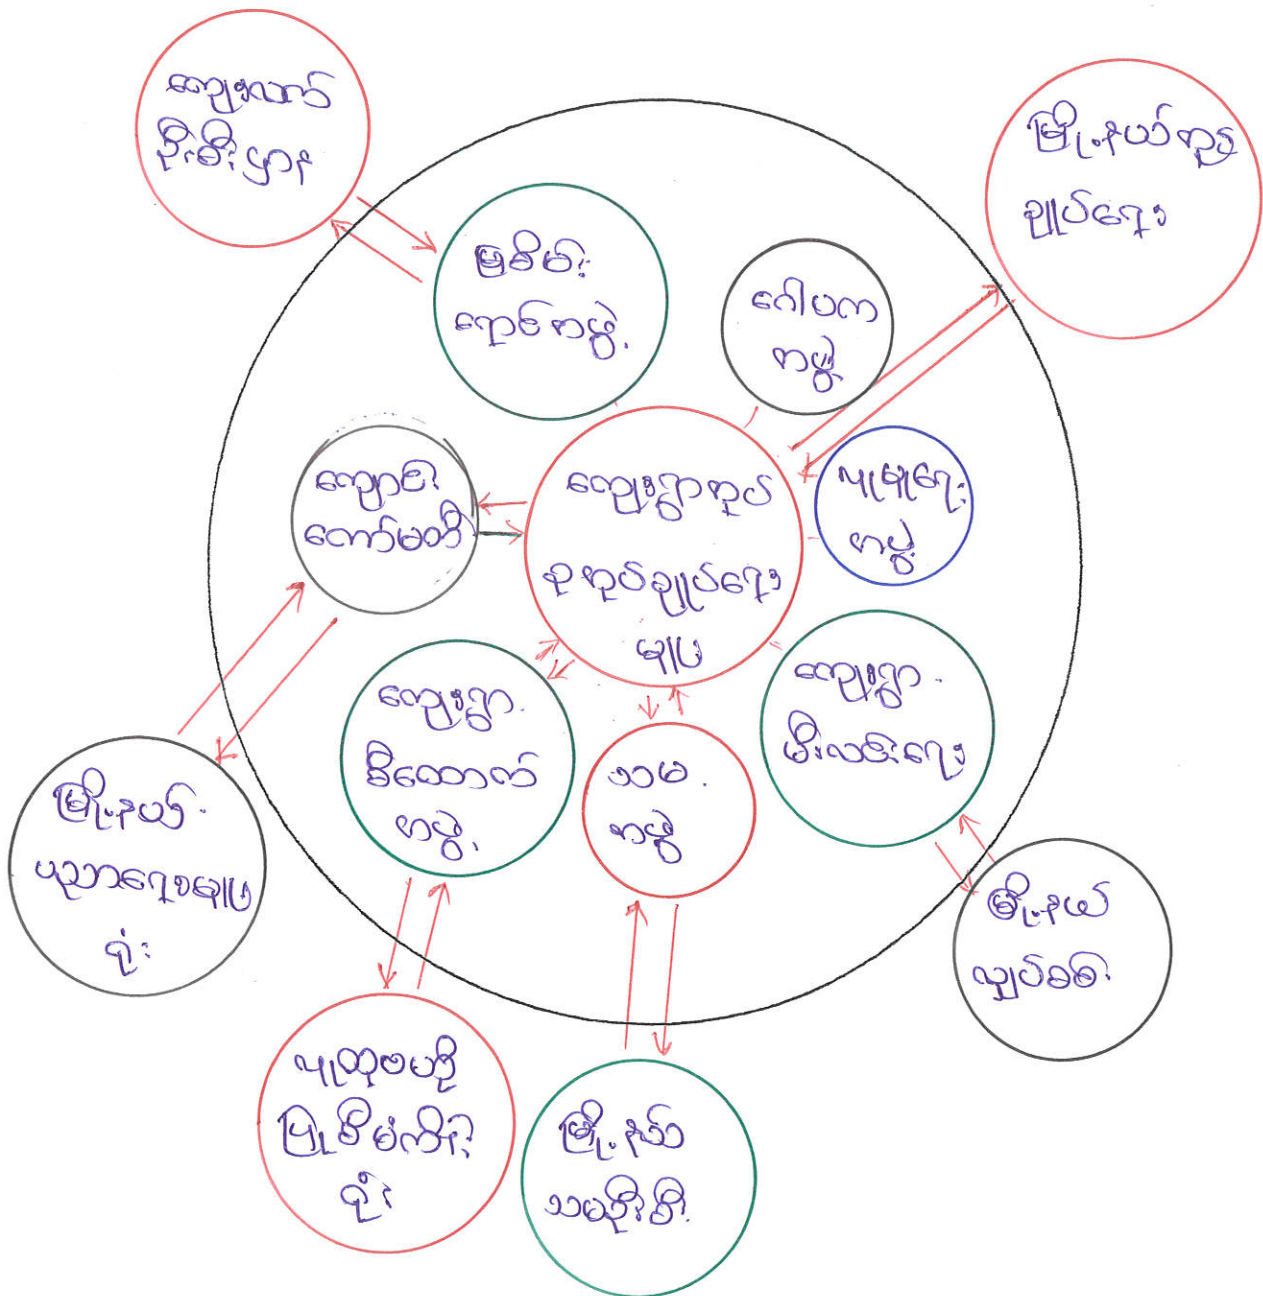 ကျေးလက်
ဦးစီးဌာန
မြို့နယ်အုပ်
ချုပ်ရေး
မြစိမ်း
ရောင်အဖွဲ့
ဂေါပက
အဖွဲ့
ကျောင်း
ကော်မတီ
ကျေးရွာအုပ်
စုအုပ်ချုပ်ရေး
မှူး
ရပ်ရေး
အဖွဲ့
ကျေးရွာ
စီထောက်
အဖွဲ့
သမ
အဖွဲ့
ကျေးရွာ
မီးလင်းရေး
မြို့နယ်
ပညာရေးမှူး
ရုံး
မြို့နယ်
လျှပ်စစ်
မြို့စီမံကိန်း
ရုံး
မြို့နယ်
သမဦးစီး